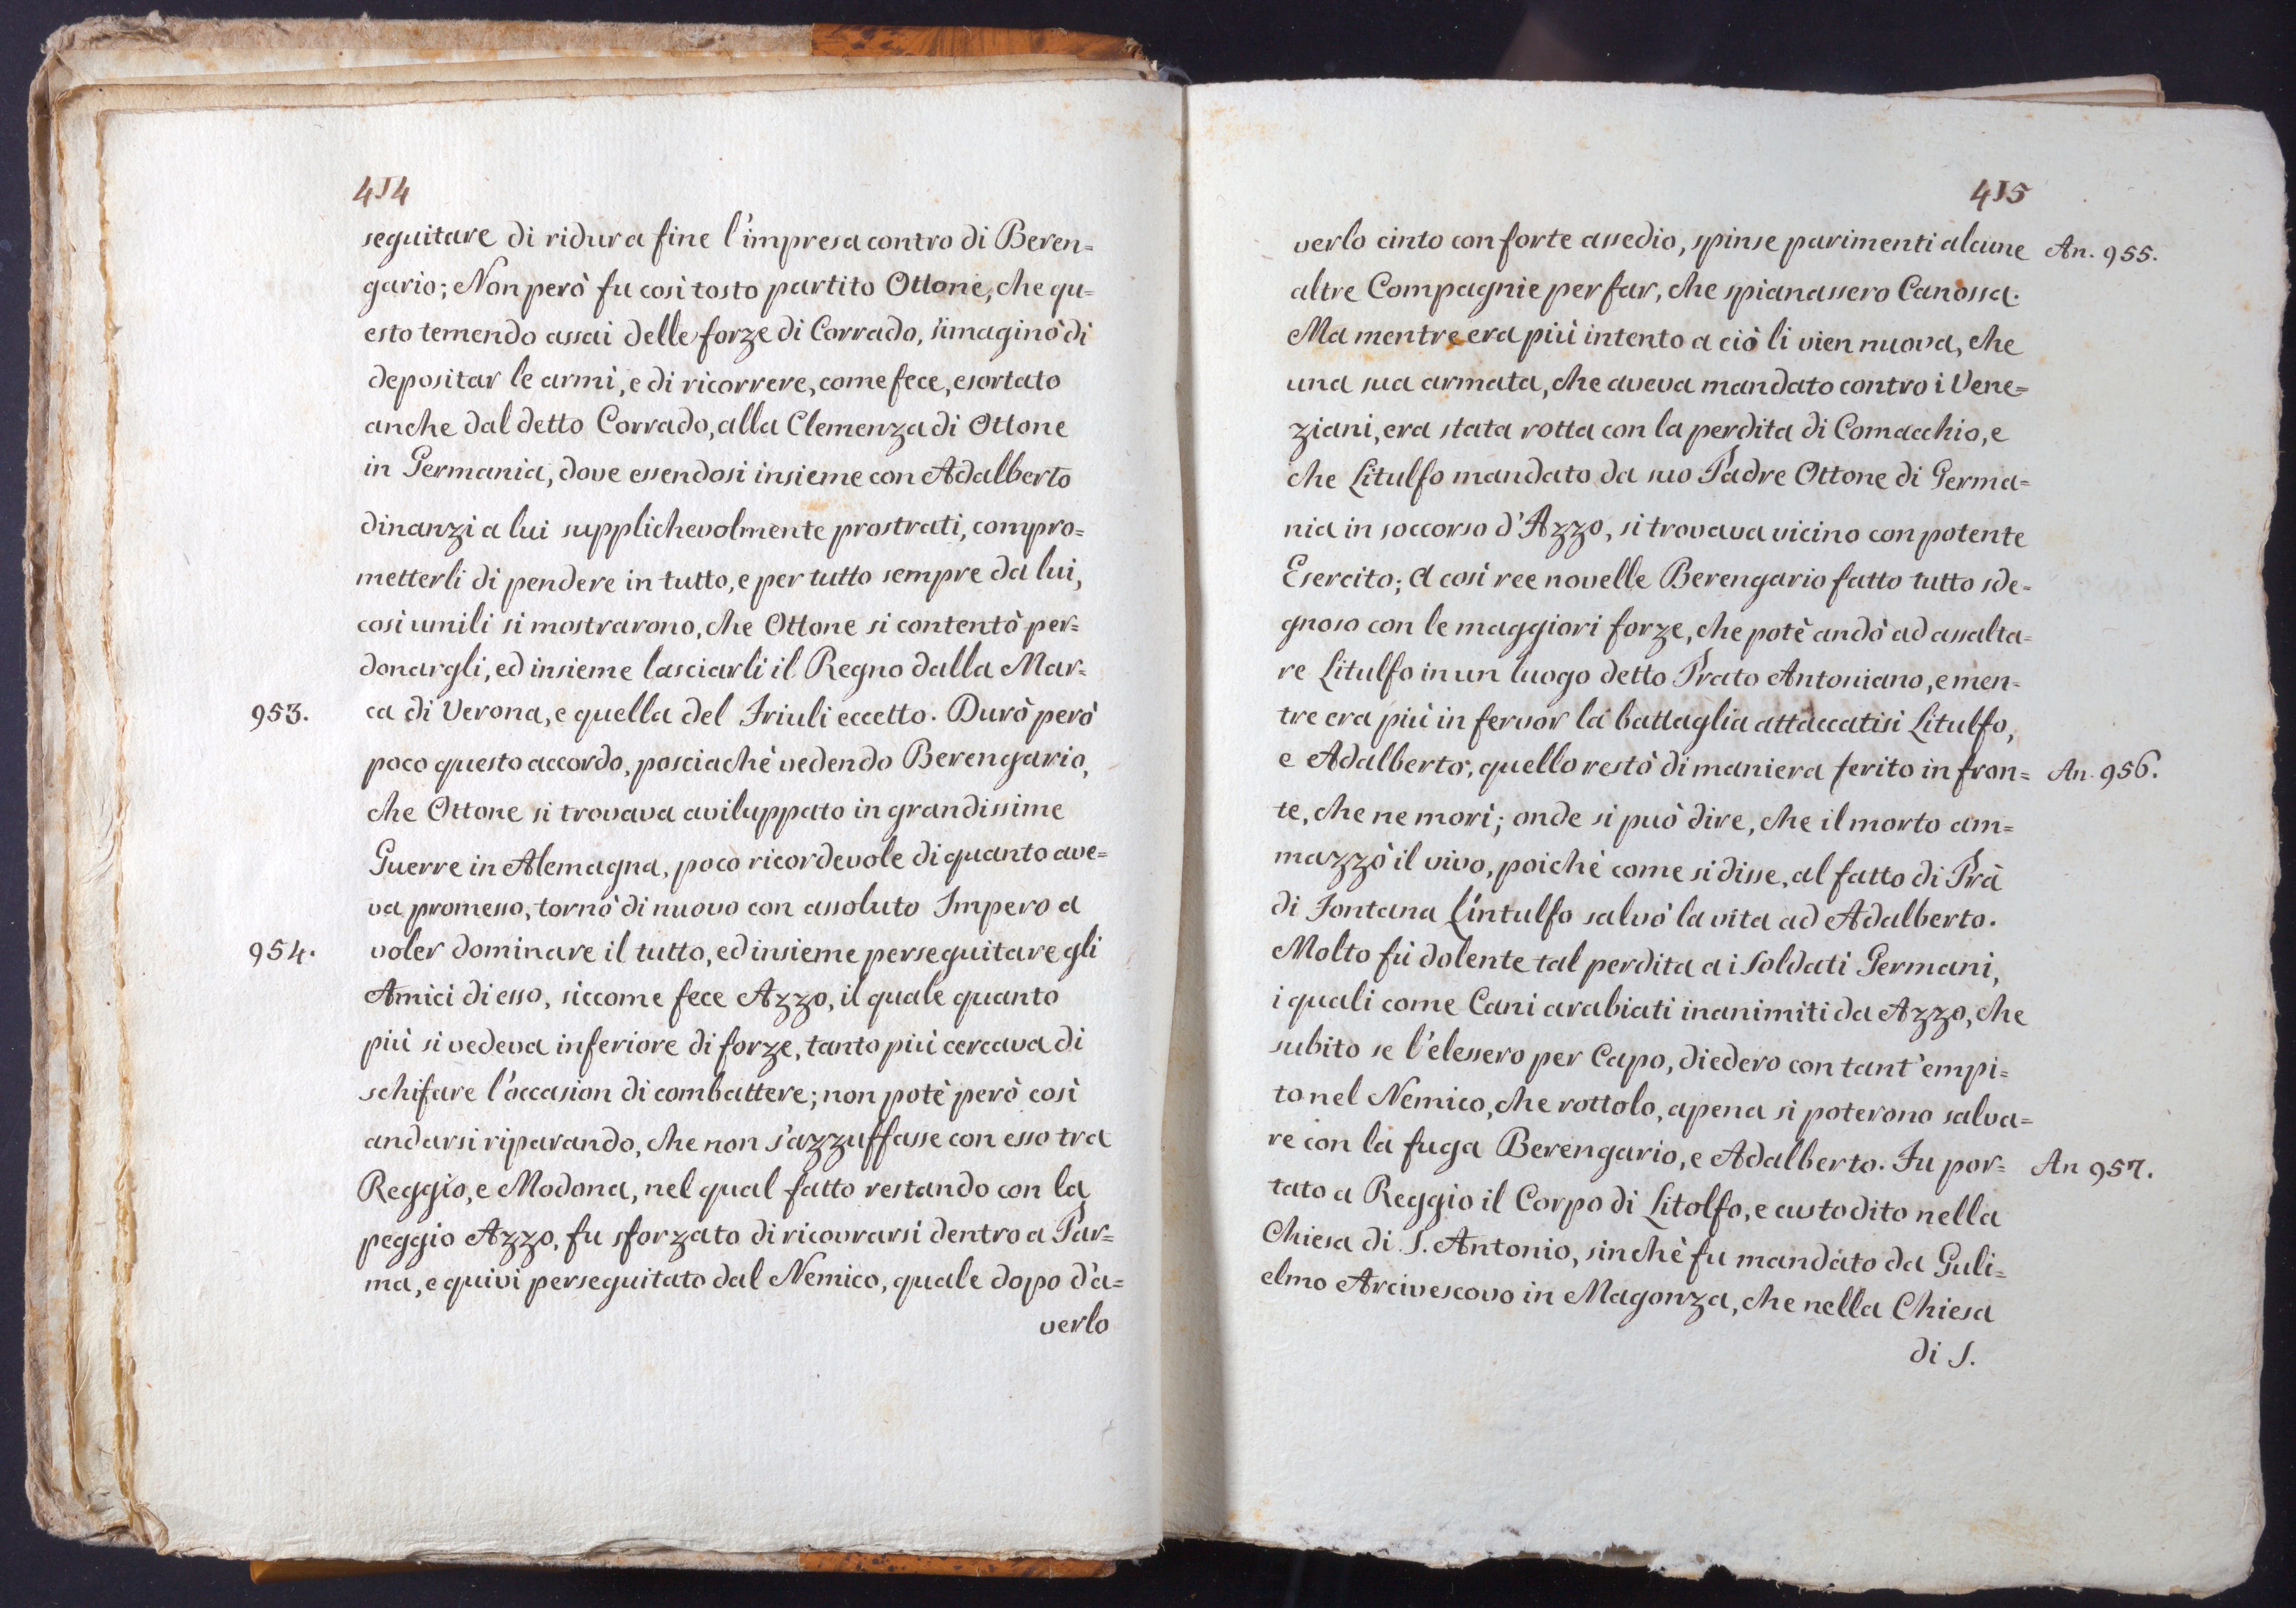 414
seguitare di ridur a fine l'impresa contro di Beren=
gario; Non però fu così tosto partito Ottone, che qu=
esto temendo assai delle forze di Corrado, s'imaginò di
depositar le armi, e di ricorrere, come fece, esortato
anche dal detto Corrado, alla Clemenza di Ottone
in Germania, dove essendosi insieme con Adalberto
dinanzi a lui supplichevolmente prostrati, compro=
metterli di pendere in tutto, e per tutto sempre da lui,
così umili si mostrarono, che Ottone si contentò per=
donargli, ed insieme lasciarli il Regno dalla Mar=
953. ca di Verona, e quella del Friuli eccetto. Durò però
poco questo accordo, posciachè vedendo Berengario,
che Ottone si trovava aviluppato in grandissime
Guerre in Alemagna, poco ricordevole di quanto ave=
va promesso, tornò di nuovo con assoluto Impero a
954. voler dominare il tutto, ed insieme perseguitare gli
Amici di esso, siccome fece Azzo, il quale quanto
più si vedeva inferiore di forze, tanto più cercava di
schifare l'occasion di combattere; non potè però così
andarsi riparando, che non s'azzuffasse con esso tra
Reggio, e Modona, nel qual fatto restando con la
peggio Azzo, fu sforzato di ricovrarsi dentro a Par=
ma, e quivi perseguitato dal Nemico, quale dopo d'a=
verlo
415
verlo cinto con forte assedio, spinse parimenti alcune An. 955.
altre Compagnie per far, che spianassero Canossa.
Ma mentre era più intento a ciò li vien nuova, che
una sua armata, che aveva mandato contro i Vene=
ziani, era stata rotta con la perdita di Comacchio, e
che Litulfo mandato da suo Padre Ottone di Germa=
nia in soccorso d'Azzo, si trovava vicino con potente
Esercito; A così ree novelle Berengario fatto tutto sde=
gnoso con le maggiori forze, che potè andò ad assalta=
re Litulfo in un luogo detto Prato Antoniano, e men=
tre era più in fervor la battaglia attaccatisi Litulfo,
e Adalberto, quello restò di maniera ferito in fron= An. 956.
te, che ne morì; onde si può dire, che il morto am=
mazzò il vivo, poichè come si disse, al fatto di Prà
di Fontana Lintulfo salvò la vita ad Adalberto.
Molto fù dolente tal perdita a i Soldati Germani,
i quali come Cani arabiati inanimiti da Azzo, che
subito se l'elessero per Capo, diedero con tant'empi=
to nel Nemico, che rottolo, apena si poterono salva=
re con la fuga Berengario, e Adalberto. Fu por= An 957.
tato a Reggio il Corpo di Litolfo, e custodito nella
Chiesa di S. Antonio, sinchè fu mandato da Guli=
elmo Arcivescovo in Magonza, che nella Chiesa
di S.